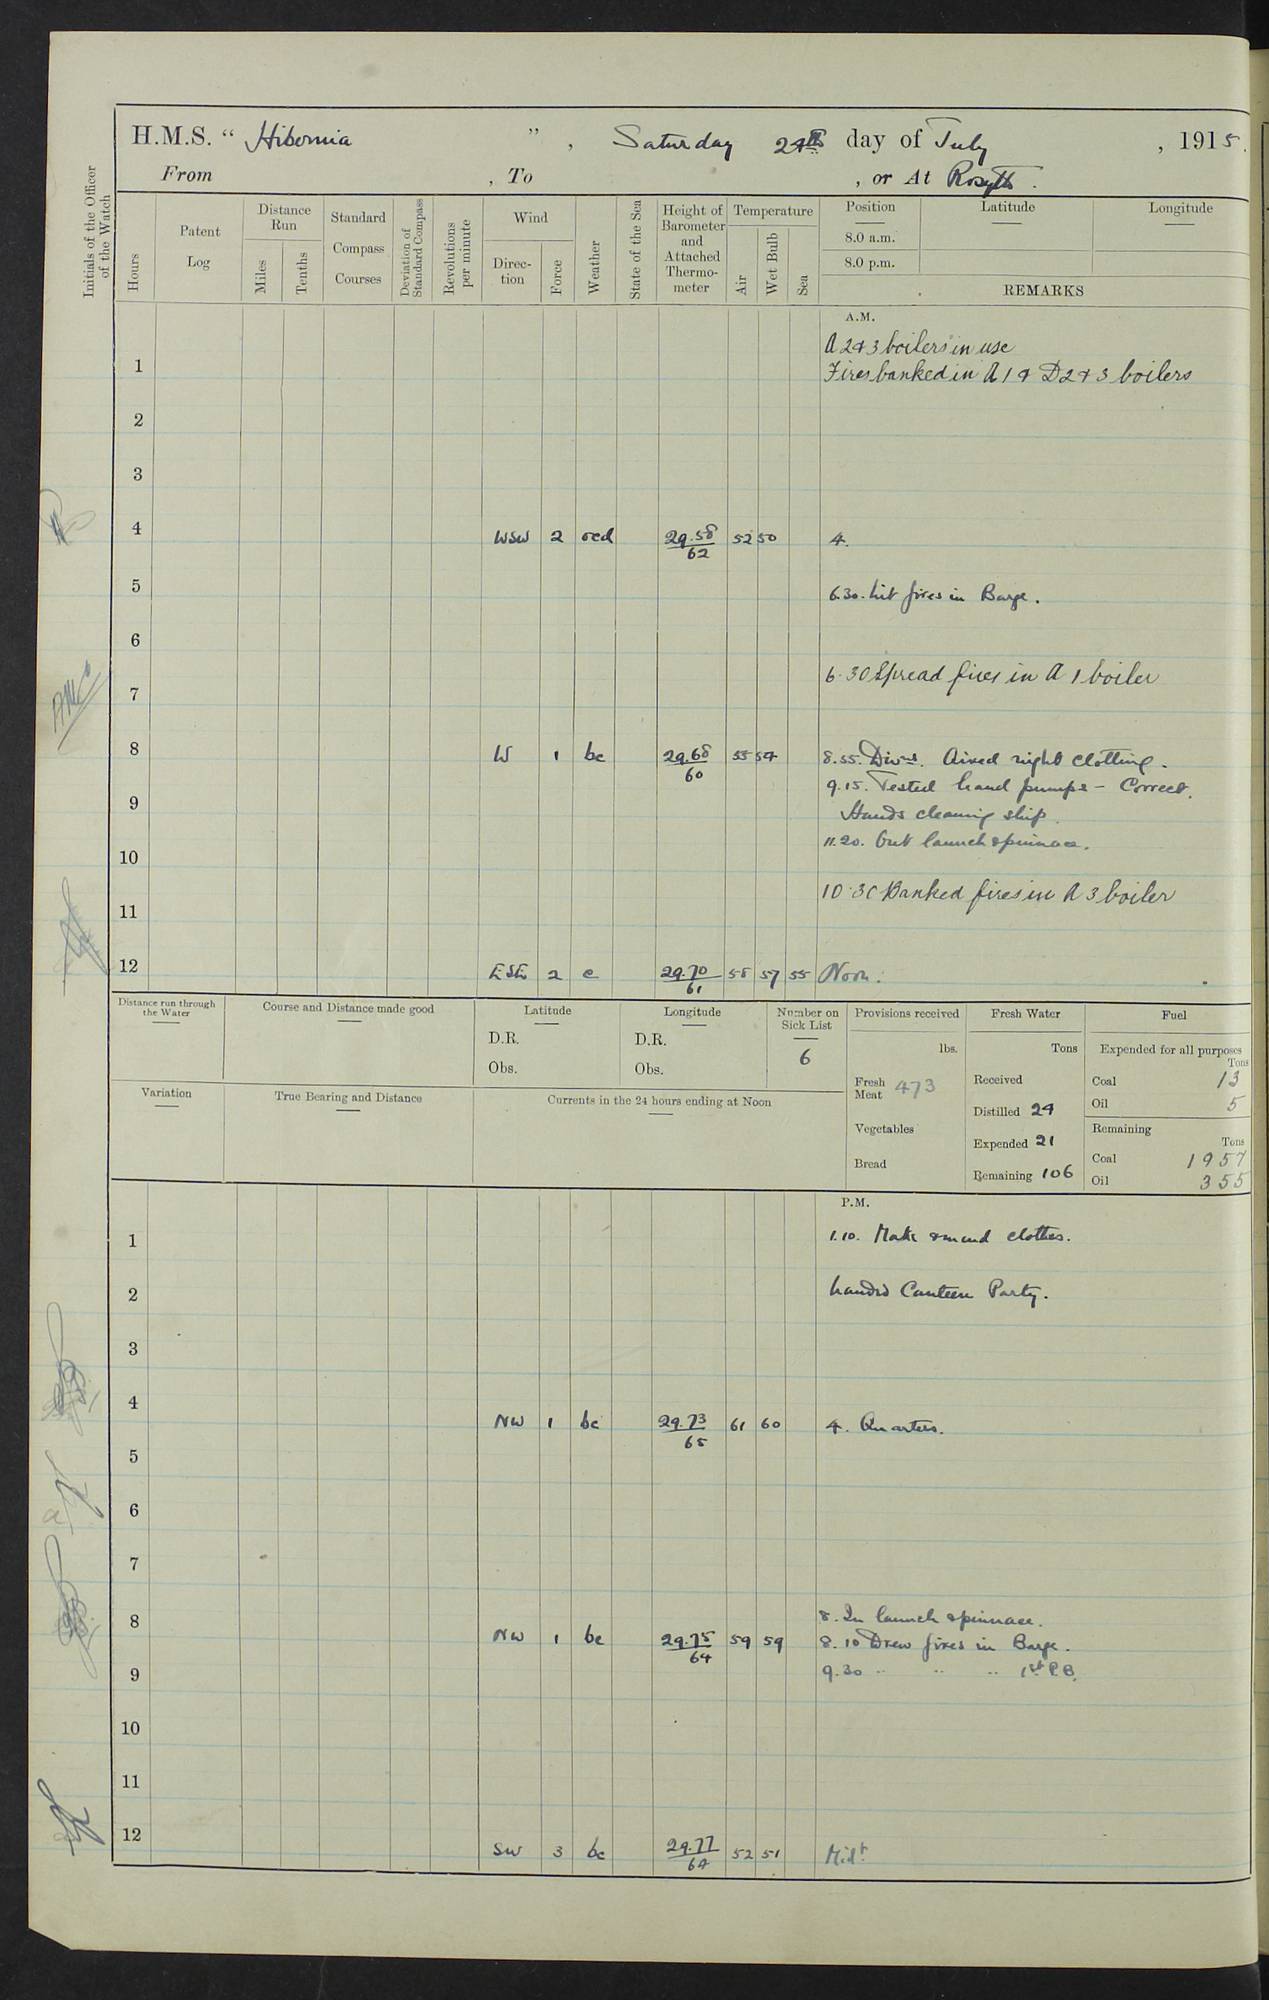 H.M.S. " Hibernia " , Saturday 24th day of July , 1915.
From , To , or At Rosyth.
Initials of the Officer of the Watch
Hours
Patent Log
Distance Run
Miles
Tenths
Standard Compass Courses
Deviation of Standard Compass
Revolutions per minute
Wind
Direc-tion
Force
Weather
State of the Sea
Height of Barometer and Attached Thermo-meter
Temperature
Air
Wet Bulb
Sea
Position Latitude Longitude
8.0 a.m.
8.0 p.m.
REMARKS
A.M.
A 2 & 3 boilers in use
1 Fires banked in A 1 & D 2 & 3 boilers
2
3
4 WSW 2 ocd 29.58/62 52 50 4.
5 6.30. Lit fires in Barge.
6
6.30 Spread fires in A 1 boiler
7
8 W 1 bc 29.68/60 55 54 8.55. Divns. Aired night clothing.
9.15. Tested hand pumps - Correct.
9 Hands cleaning ship.
11.20. Out launch & pinnace.
10
10.30 Banked fires in A 3 boiler
11
12 ESE 2 c 29.70/61 58 57 55 Noon.
Distance run through the Water
Course and Distance made good
Latitude
D.R.
Obs.
Longitude
D.R.
Obs.
Number on Sick List
6
Provisions received
lbs.
Fresh Meat 473
Vegetables
Bread
Fresh Water
Tons
Received
Distilled 24
Expended 21
Remaining 106
Fuel
Expended for all purposes
Tons
Coal 13
Oil 5
Remaining
Tons
Coal 1957
Oil 355
Variation
True Bearing and Distance
Currents in the 24 hours ending at Noon
P.M.
1 1.10. Make & mend clothes.
2 Landed Canteen Party.
3
4 NW 1 bc 29.73/65 61 60 4. Quarters.
5
6
7
8 8. In launch & pinnace.
NW 1 bc 29.75/64 59 59 8.10 Drew fires in Barge.
9 9.30 " " " 1st P.B.
10
11
12 SW 3 bc 29.77/64 52 51 Midt.